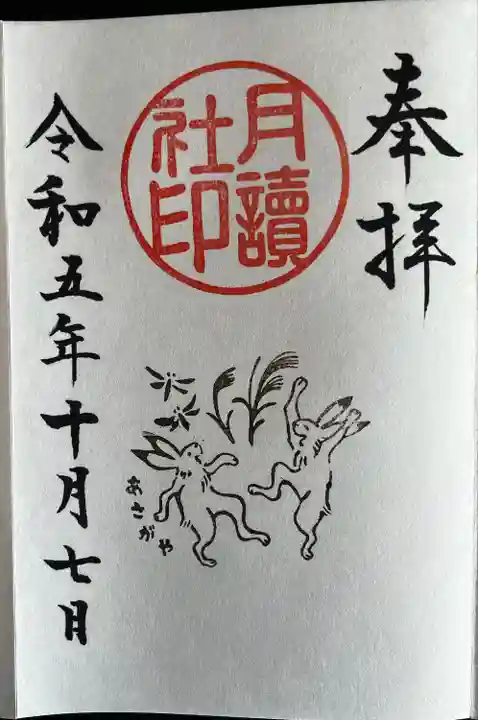 奉拝
月讀
社印
あさがや
令和五年十月七日